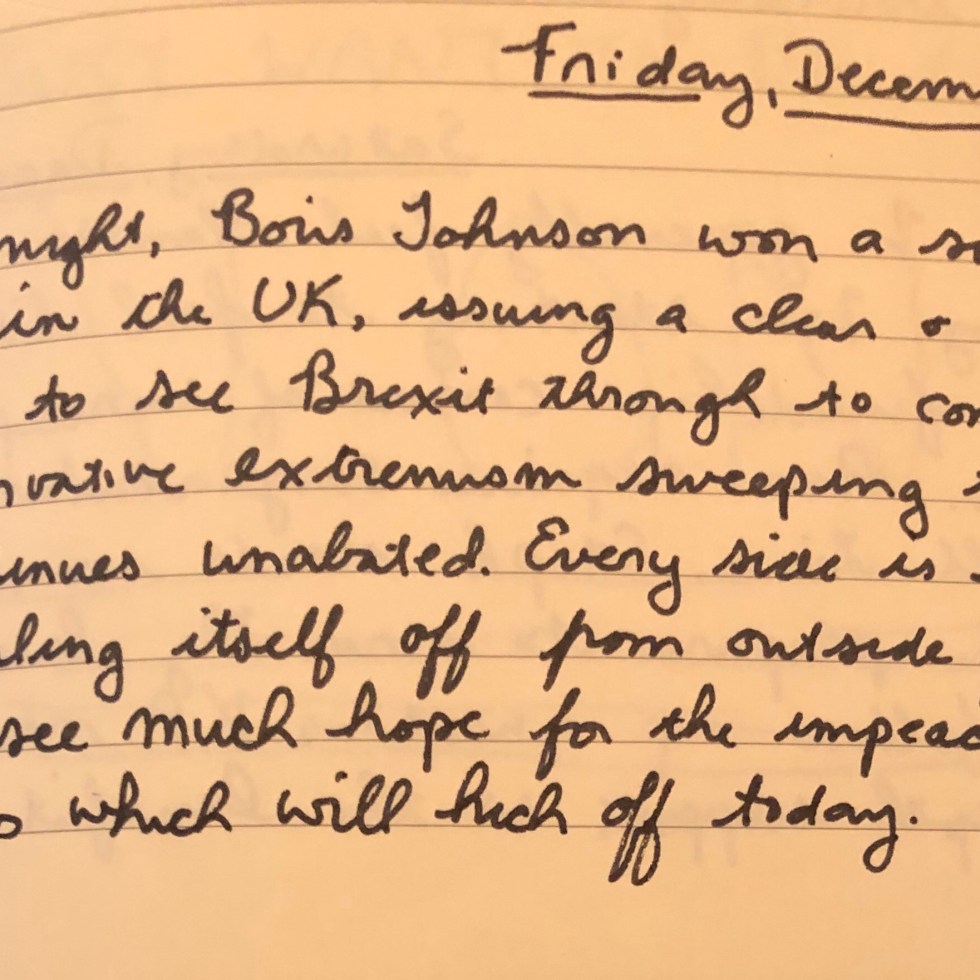 Friday, Decem
night, Boris Johnson won a s
in the UK, issuing a clear
to see Brexit through to con
rvative extremism sweeping
inues unabated. Every side is
ling itself off from outside
see much hope for the impeac
which will kick off today.